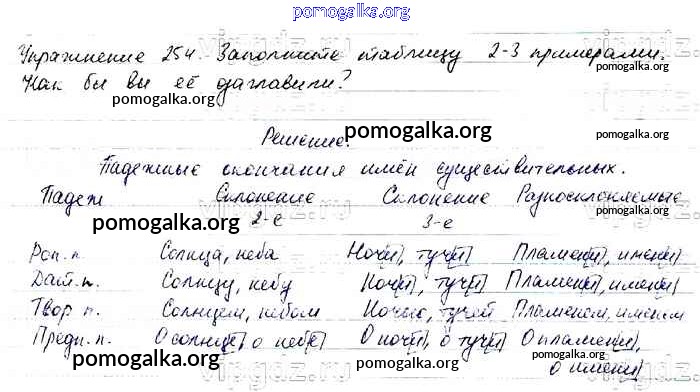 pomogalka.org
Упражнение 254. Заполните таблицу 2-3 примерами.
Как бы вы её озаглавили?
pomogalka.org pomogalka.org
Решение. pomogalka.org
Падежные окончания имён существительных.
Падеж Склонение 2-е Склонение 3-е Разносклоняемые
pomogalka.org pomogalka.org
Род. п. Солнца, неба Ночи, тучи Пламени, имени
Дат. п. Солнцу, небу Ночи, тучи Пламени, имени
pomogalka.org
Твор. п. Солнцем, небом Ночью, тучей Пламенем, именем
Предл. п. О солнце, о небе О ночи, о тучи О пламени, о имени
pomogalka.org pomogalka.org pomogalka.org